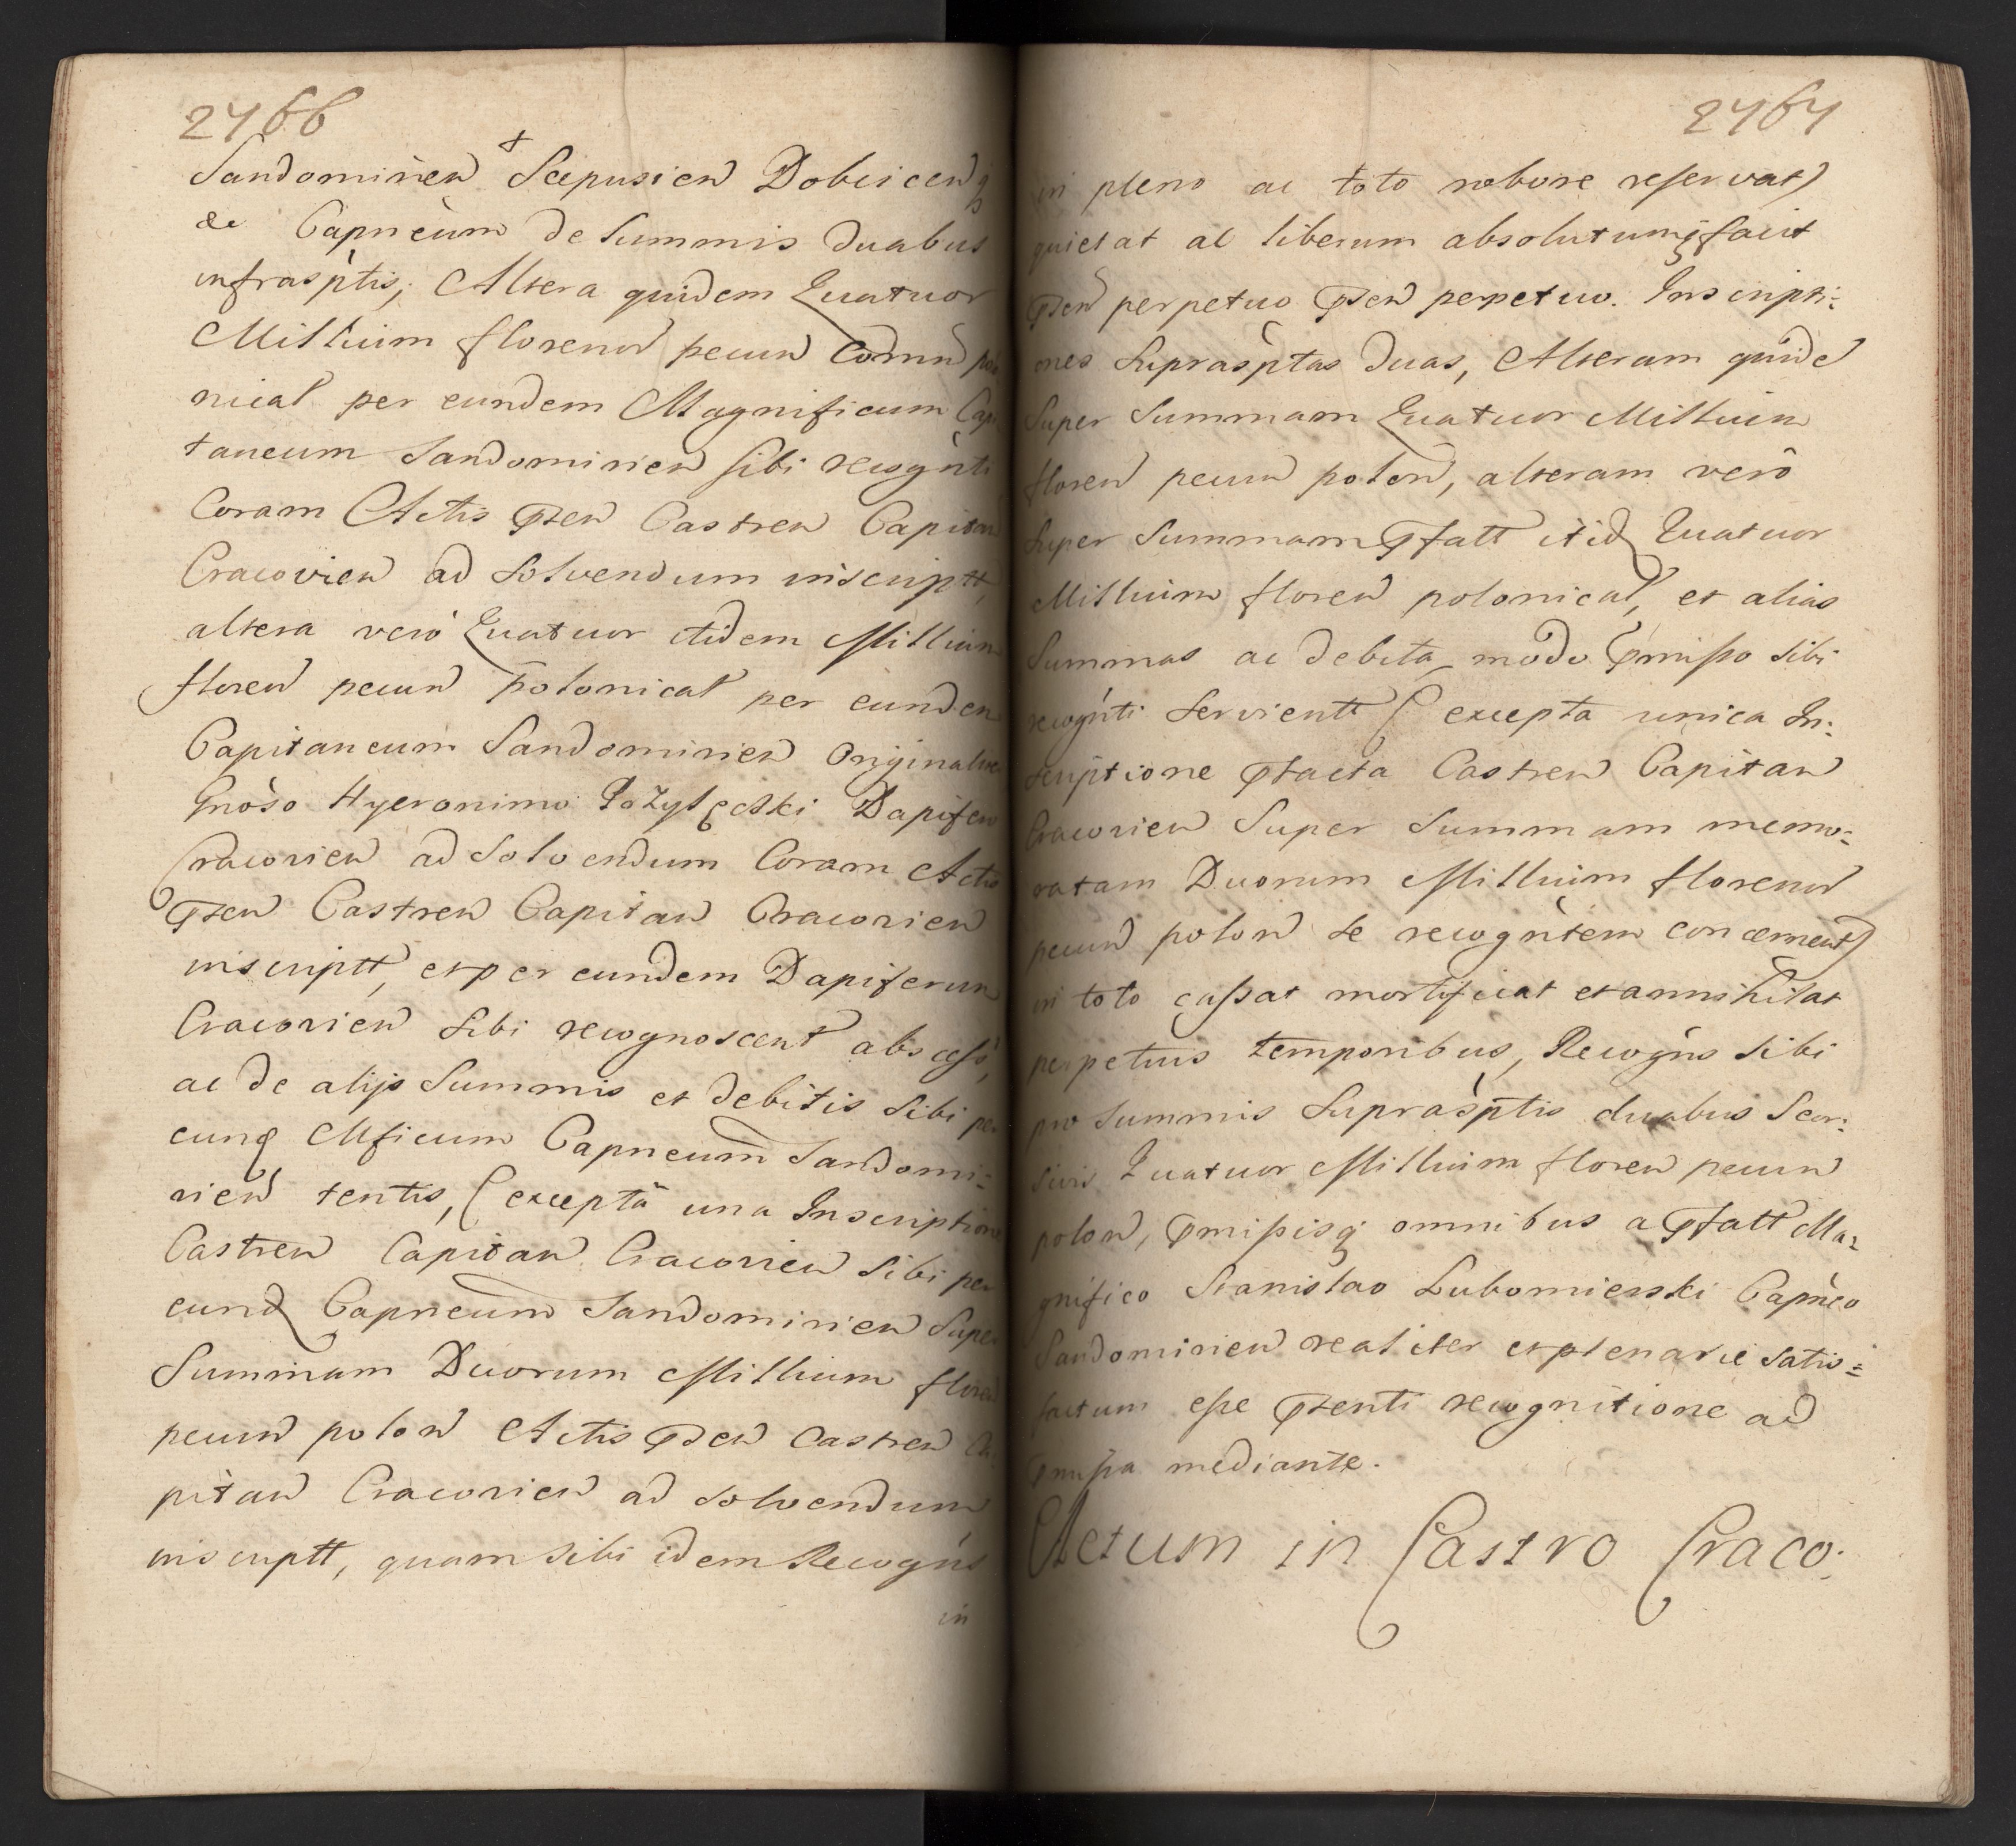 2766
Sandomirien Scepusien Dobcicen q
&c Capneum de Summis duabus
infrasptis; Altera quidem Quatuor
Millium florenor pecun Comun
nical per eundem Magnificum Capi
taneum Sandomirien sibi recognti
Coram Actis pnten Castren Capitan
Cracovien ad solvendum inscriptt,
altera vero Quatuor itidem Millium
floren pecun polonical per eundem
Capitaneum Sandomirien originaliter
Gnoso Hyeronimo Dapifero
Cracovien ad solvendum Coram Actis
pnten Castren Capitan Cracovien
inscriptt, et per eundem Dapiferum
Cracovien sibi recognoscent abscess,
ac de alijs Summis et debitis sibi per
eund Mficum Capneum Sandomi-
rien tentis, (excepta una Inscriptione
Castren Capitan Cracovien sibi per
eund Capneum Sandomirien Super
Summam Duorum Millium floren
pecun polon Actis pnten Castren Ca
pitan Cracovien ad solvendum
inscriptt, quam sibi idem Recogns
in
2767
in pleno ac toto robore reservat)
quietat ac liberum absolutumq facit
pnten perpetuo pnten perpetuo. Inscriptio-
nes Suprasptas duas, Alteram quide
Super Summam Quatuor Millium
floren pecun polon, alteram vero
Super Summam pfatt itid Quatuor
Millium floren polonical, et alias
Summas ac debita modo pmisso sibi
recognti servientt (excepta unica In-
scriptione ptacta Castren Capitan
Cracovien Super Summam memo-
ratam Duorum Millium florenor
pecun polon se recogntem concernent)
in toto cassat mortificat et annihilat
perpetuis temporibus, Recogns sibi
pro Summis Suprasptis duabus Seor-
sivis Quatuor Millium floren pecun
polon, pmissisq omnibus a pfatt Ma-
gnifico Stanislao Lubomierski Capneo
Sandomirien realiter et plenarie satis-
factum esse pnsenti recognitione ad
pmissa mediante.
Actum in Castro Craco: